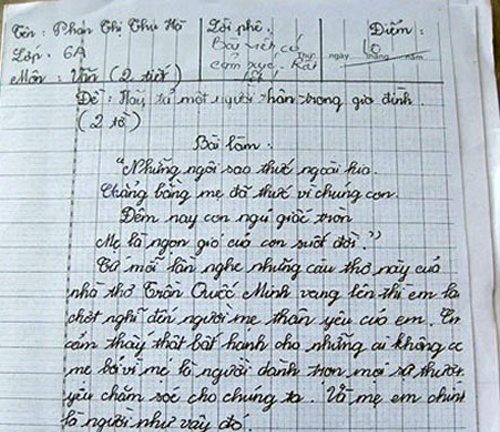 Tên : Phan Thị Thu Hà Lời phê : Điểm :
Lớp : 6A Bài viết có Thứ ngày tháng năm 10
Môn : Văn (2 tiết) cảm xúc. Rất
tốt!
Đề : Hãy tả một người thân trong gia đình.
(2 tờ)
Bài làm :
"Những ngôi sao thức ngoài kia
Chẳng bằng mẹ đã thức vì chúng con.
Đêm nay con ngủ giấc tròn
Mẹ là ngọn gió của con suốt đời."
Cứ mỗi lần nghe những câu thơ này của
nhà thơ Trần Quốc Minh vang lên thì em lại
chợt nghĩ đến người mẹ thân yêu của em. Em
cảm thấy thật bất hạnh cho những ai không có
mẹ bởi vì mẹ là người dành trọn mọi sự thương
yêu chăm sóc cho chúng ta. Và mẹ em chính
là người như vậy đó.